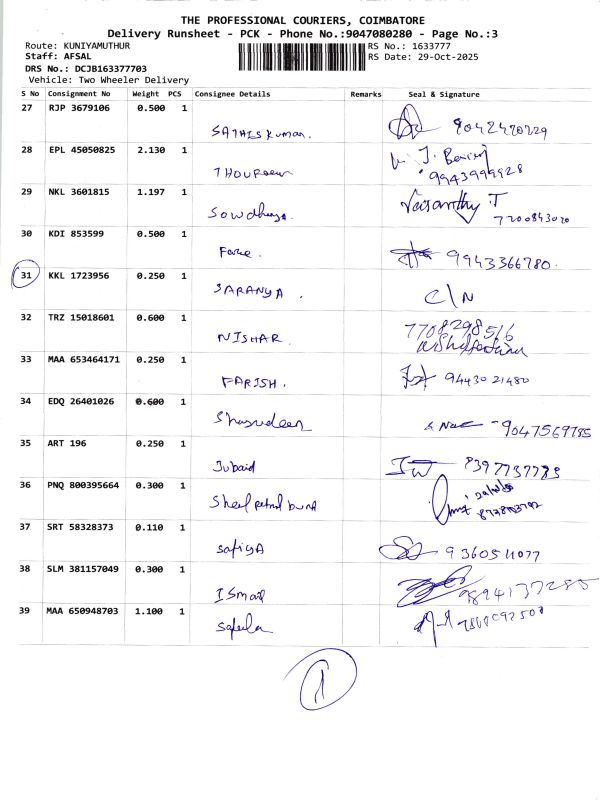 THE PROFESSIONAL COURIERS, COIMBATORE
Delivery Runsheet - PCK - Phone No.:9047080280 - Page No.:3
Route: KUNIYAMUTHUR
RS No.: 1633777
Staff: AFSAL
RS Date: 29-Oct-2025
DRS No.: DCJB163377703
Vehicle: Two Wheeler Delivery
S No Consignment No Weight PCS Consignee Details Remarks Seal & Signature
27 RJP 3679106 0.500 1
SATHISKUMAR.
28 EPL 45050825 2.130 1
9943999928
29 NKL 3601815 1.197 1
Sowdhaya. Vasanthy T
7200843020
30 KDI 853599 0.500 1
9943366780.
31 KKL 1723956 0.250 1
SARANYA. C\N
32 TRZ 15018601 0.600 1
NISHAR. 7708298516
33 MAA 653464171 0.250 1
FARISH. 9443021480
34 EDQ 26401026 0.600 1
9047569785
35 ART 196 0.250 1
Jubaid
36 PNQ 800395664 0.300 1
37 SRT 58328373 0.110 1
safiyA 9360511077
38 SLM 381157049 0.300 1
ISmail 9894137285
39 MAA 650948703 1.100 1
1